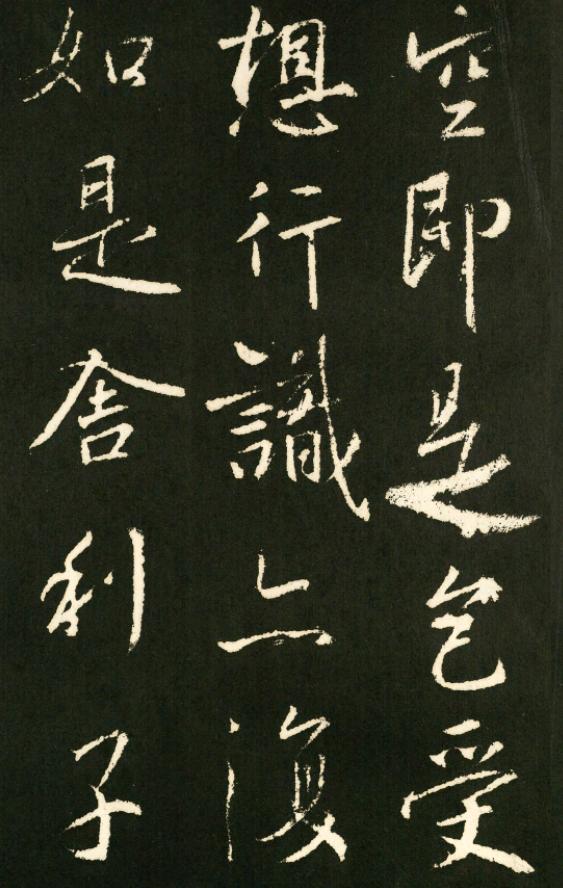 空即是色受
想行識亦復
如是舍利子